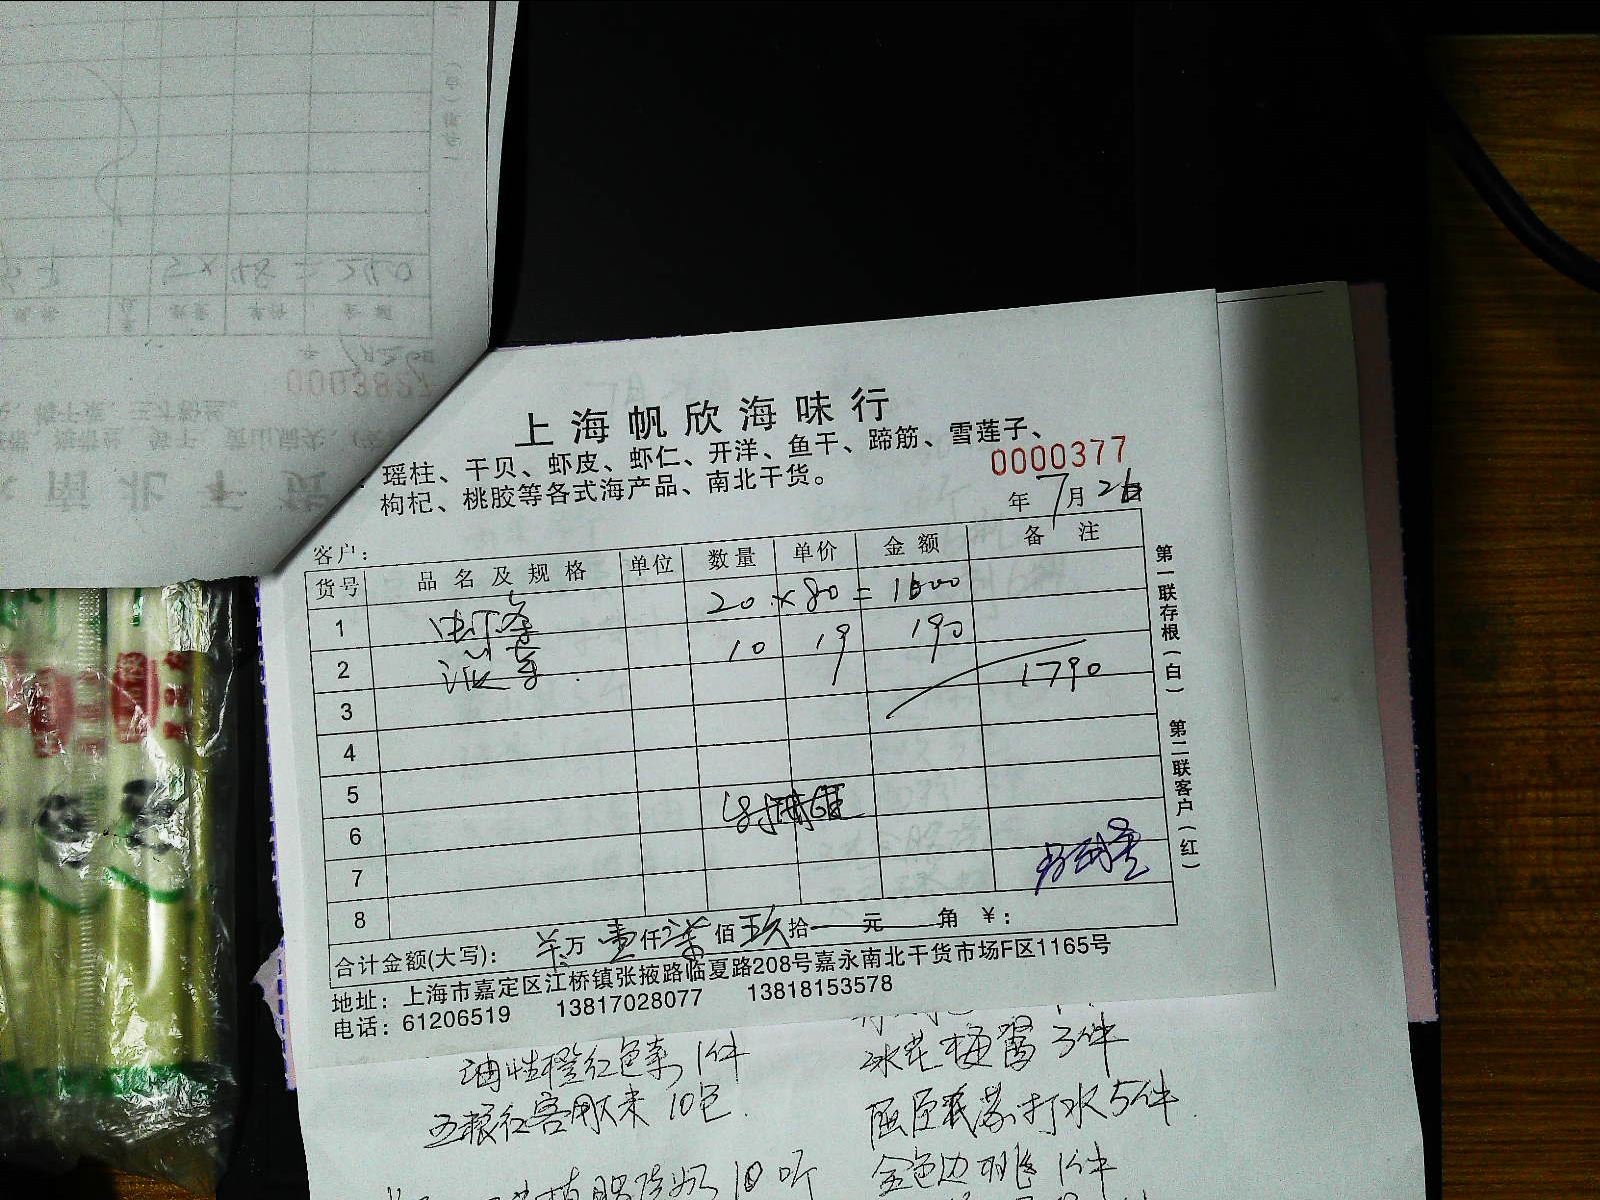 上海帆欣海味行
瑶柱、干贝、虾皮、虾仁、开洋、鱼干、蹄筋、雪莲子、
枸杞、桃胶等各式海产品、南北干货。
0000377
年 7月26日
客户：
货号 品名及规格 单位 数量 单价 金额 备注
1 20 × 80 = 1600
2 10 19 190
3 1790
4
5
6
7
8
合计金额(大写)： 万 壹仟 柒佰 玖拾 元 角 ￥：
地址：上海市嘉定区江桥镇张掖路临夏路208号嘉永南北干货市场F区1165号
电话：61206519 13817028077 13818153578
第一联存根（白） 第二联客户（红）
油性橙红色素 1件
冰花梅酱 3件
五粮红客 10包
屈臣氏苏打水 5件
10听
金色边 1件
0003827
5 × 48 = 240